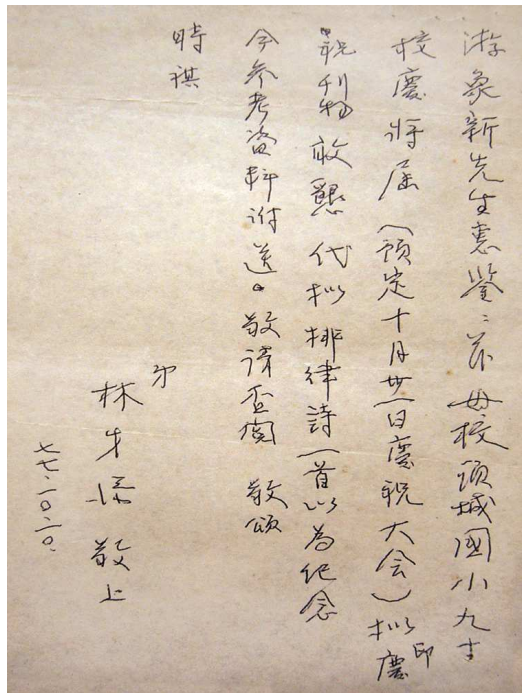 游象新先生惠鑒：茲母校頭城國小九十
校慶將屆（預定十月卅一日慶祝大会）拟印慶
祝刊物 敢懇 代拟排律詩一首以為纪念
今参考資料附送。敬請查閱 敬頌
時祺
弟
林才添 敬上
七七.一〇.一〇.